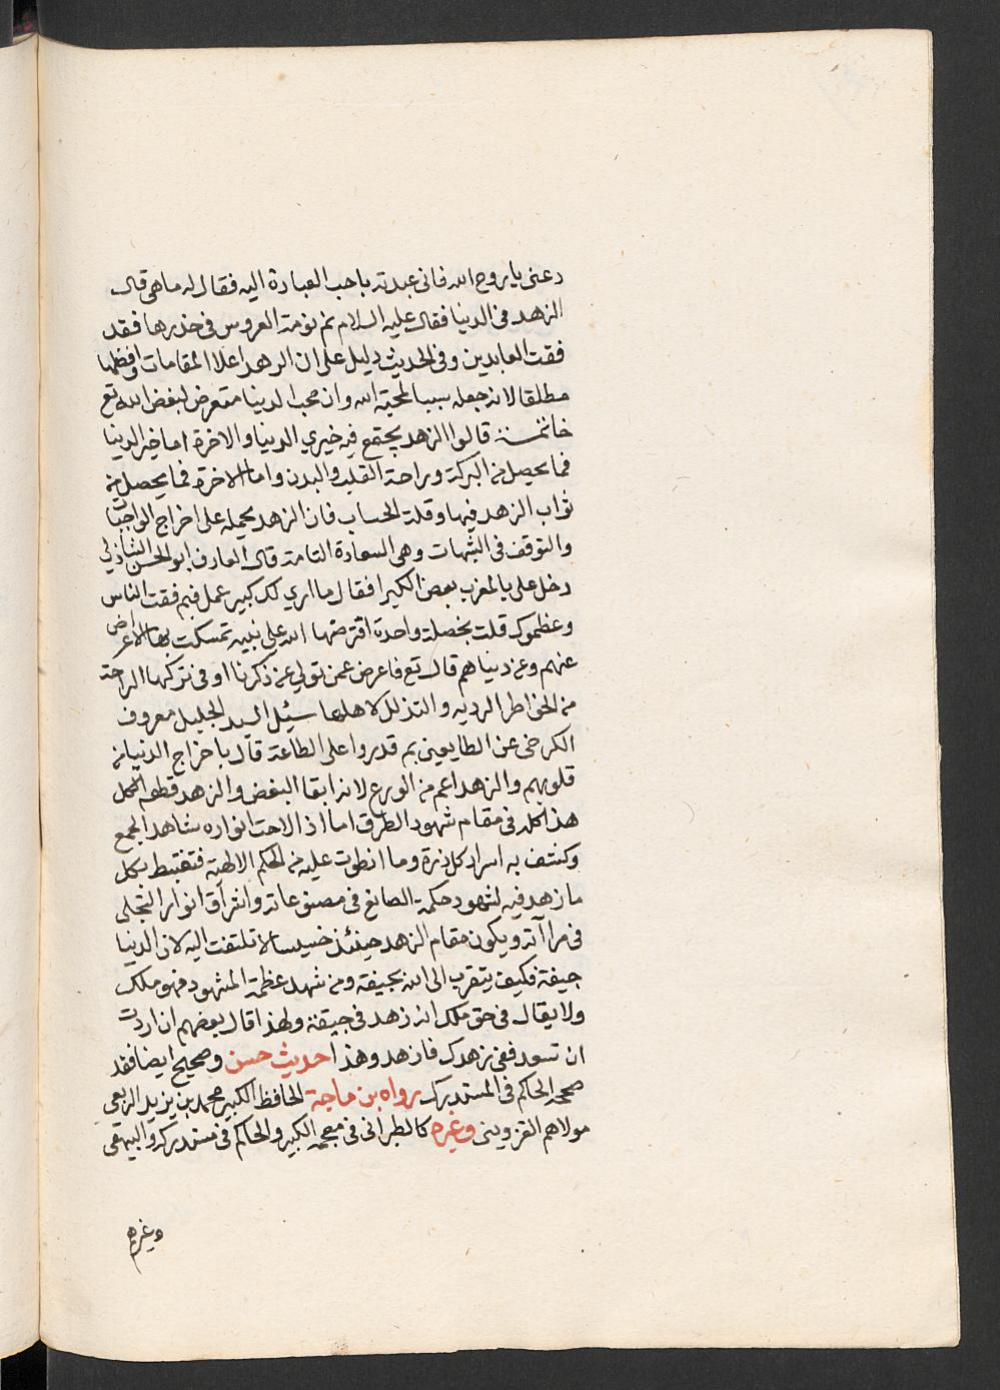 دعنى يا روح الله فانى عبدته باحب العبادة اليه فقال له ما هى قال
الزهد فى الدنيا فقال عليه السلام نم نومة العروس فى خدرها فقد
فقت العابدين وفى الحديث دليل على ان الزهد اعلا المقامات وافضلها
مطلقا لانه جعله سببا لمحبة الله وان محب الدنيا متعرض لبغض الله تع
خاتمـة قالوا الزهد يجتمع فيه خيرى الدنيا والاخرة اما خير الدنيا
فما يحصل من البركة وراحة القلب والبدن واما الاخرة فما يحصل من
ثواب الزهد فيها وقلت الحساب فان الزهد يحمله على اخراج الواجبات
والتوقف فى الشبهات وهى السعادة التامة قال العارف ابو الحسن الشاذلى
دخل على بالمغرب بعض الكبرا فقال ما ارى لك كبير عمل فبم فقت الناس
وعظموك قلت بخصلة واحدة افترضها الله على نبيه تمسكت بها الاعراض
عنهم وعن دنياهم قال تع فاعرض عمن تولى عن ذكرنا او فى تركها الراحة
من الخواطر الرديه والتذلل لاهلها سيئل السيد الجليل معروف
الكرخى عن الطايعين بم قدروا على الطاعة قال باخراج الدنيا من
قلوبهم والزهد اعم من الورع لانه ابقا البعض والزهد قطع الكل
هذا كله فى مقام شهود الطرق اما اذ الاحت انواره شاهد الجمع
وكشف به اسرار كل ذرة وما انطوت عليه من الحكم الالهية فتغتبط بكل
ما زهد فيه لشهود حكمة الصانع فى مصنوعاته واشراق انوار التجلى
فى مراآته ويكون مقام الزهد حينئذ خسيسا لا تلتفت اليه لان الدنيا
جيفة فكيف يتقرب الى الله بجيفة ومن شهد عظمة المشهود فهو ملك
ولا يقال فى حق ملك انه زهد فى جيفة ولهذا قال بعضهم ان اردت
ان تسود ففى زهدك فازهد وهذا حديث حسن وصحيح ايضا فقد
صححه الحاكم فى المستدرك رواه بن ماجة الحافظ الكبير محمد بن يزيد الربعى
مولاهم القزوينى وغيره كالطبرانى فى معجمه الكبير والحاكم فى مستدركه والبيهقى
وغيرهم